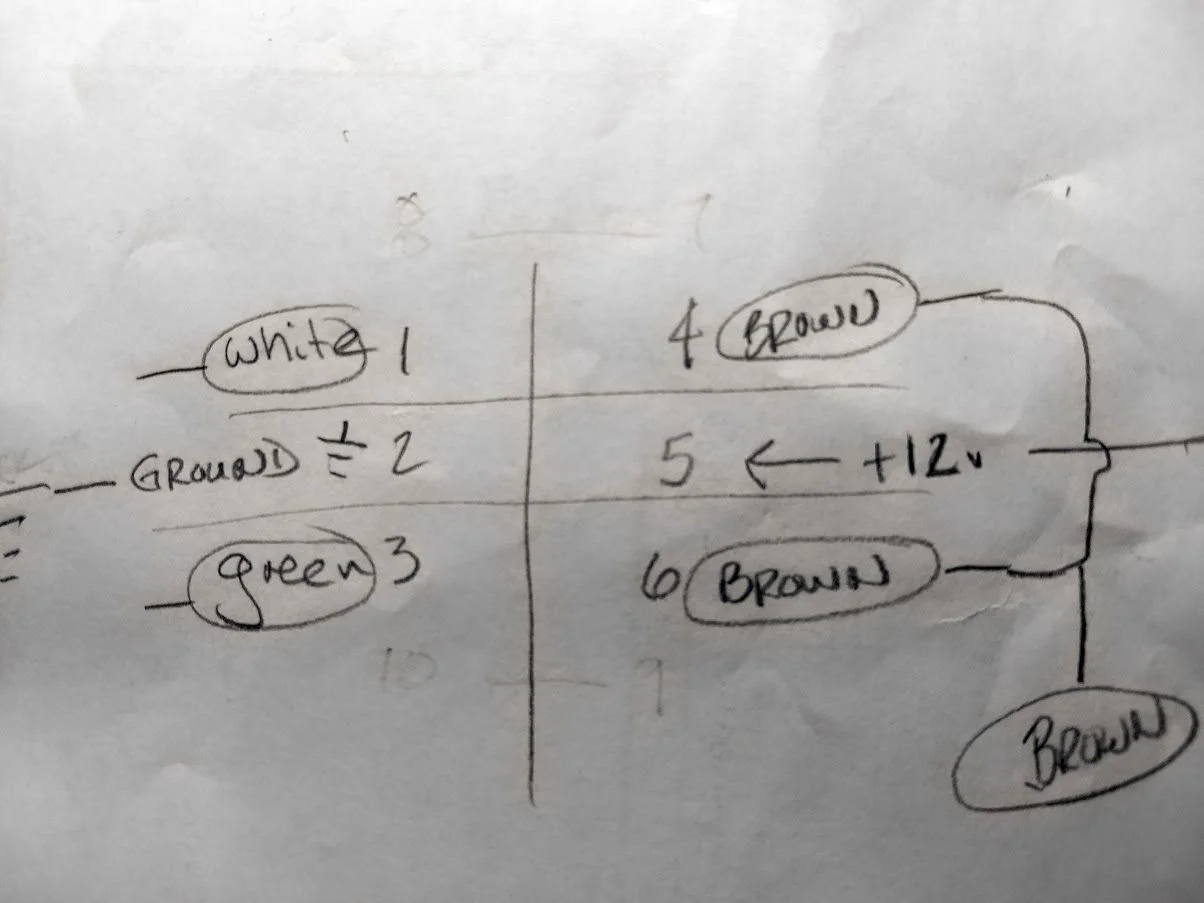 8 7
white 1 4 BROWN
GROUND 2 5 ← +12v
green 3 6 BROWN
10 9
BROWN